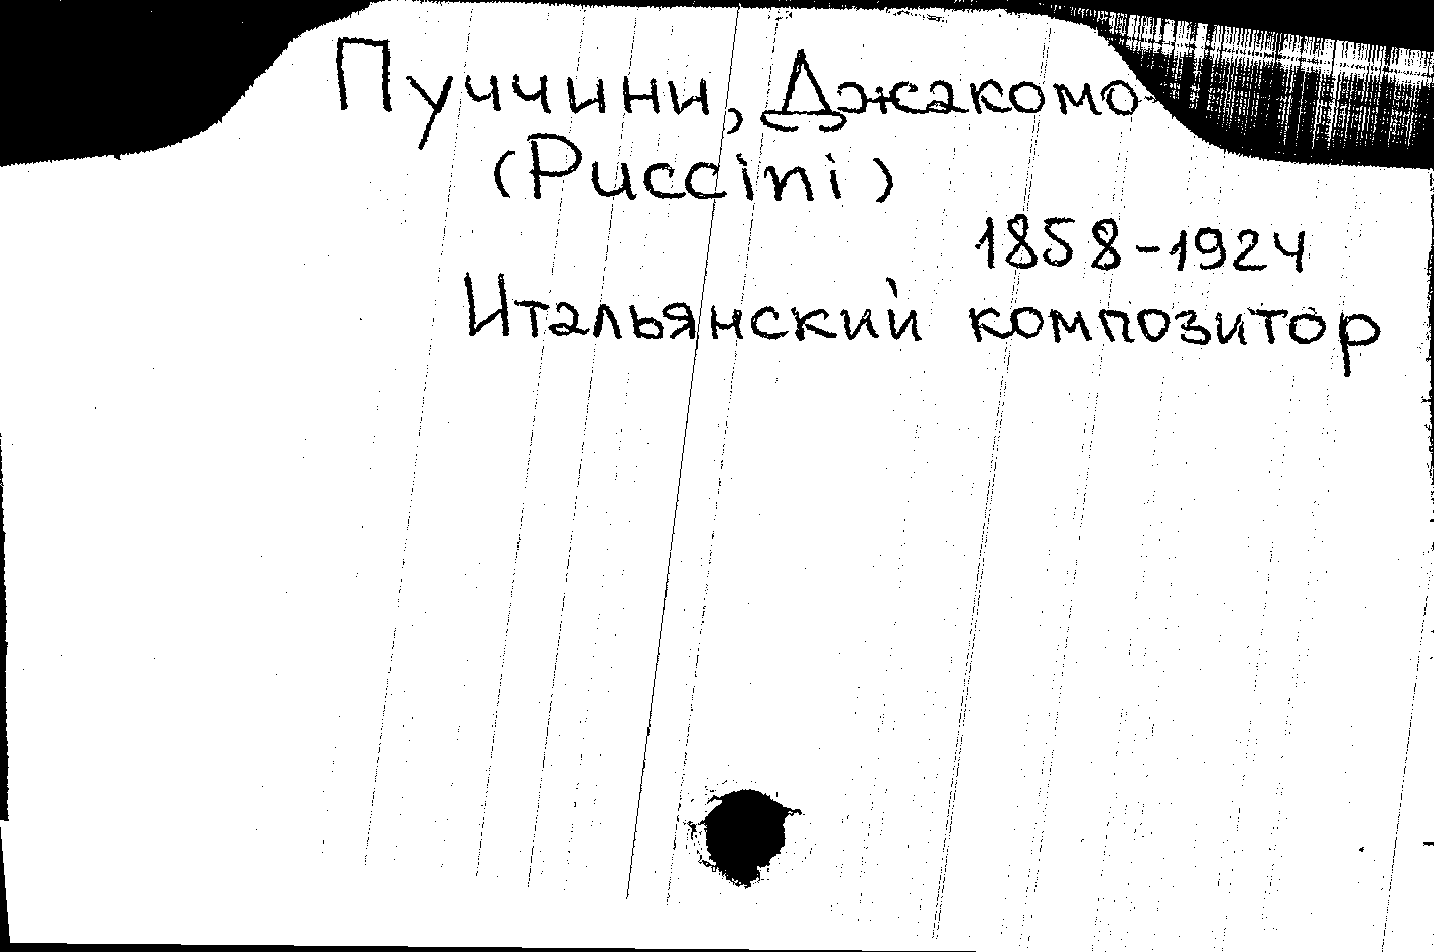 Пуччини, Джакомо
(Puccini)
1858-1924
Итальянский композитор